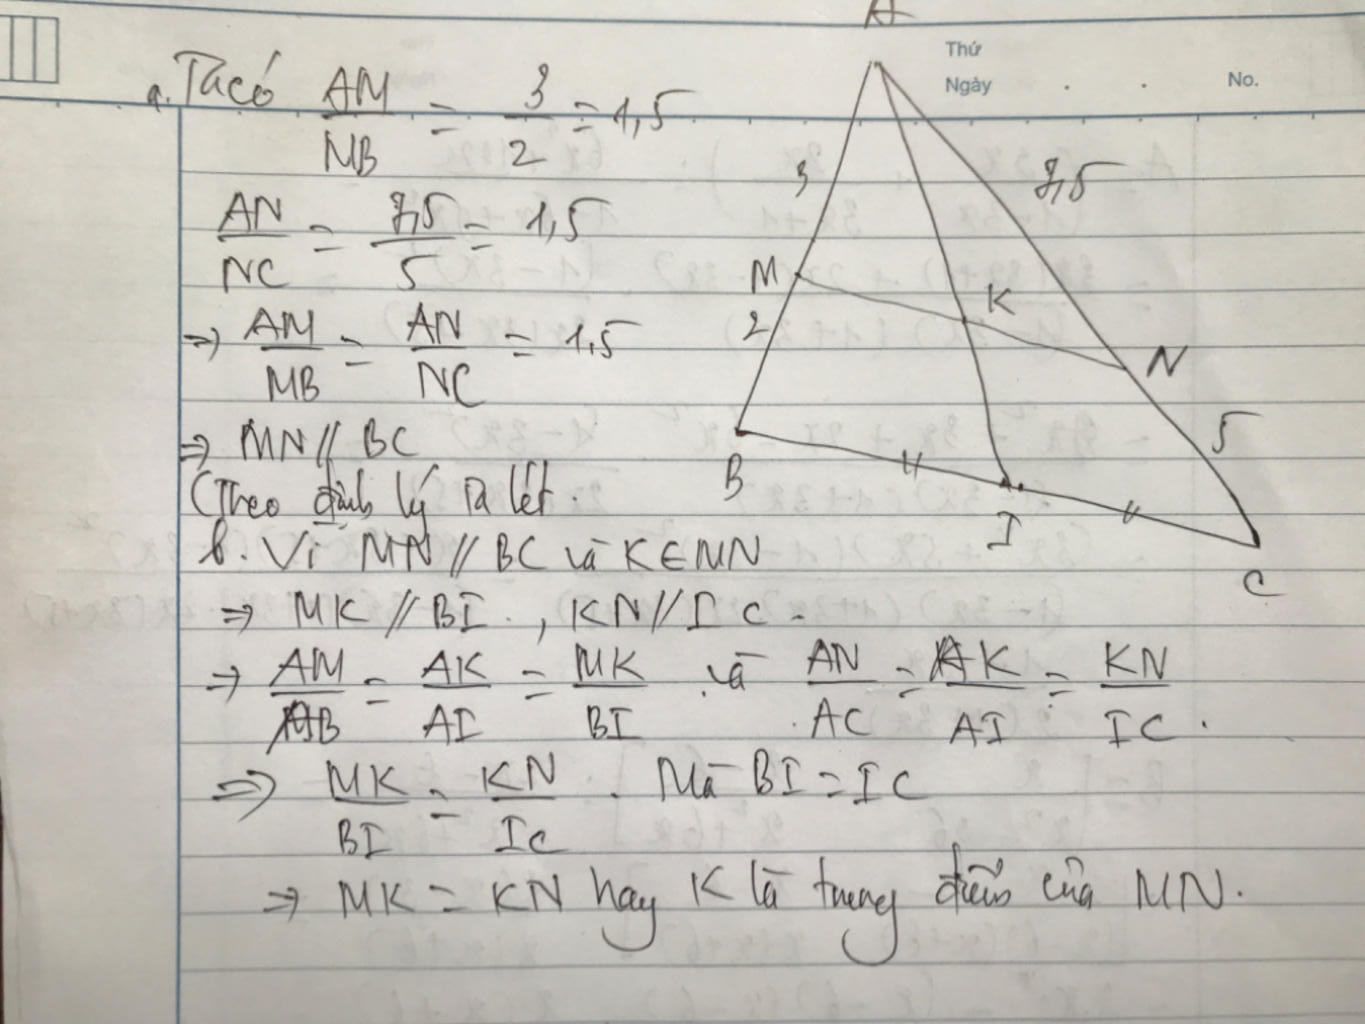 A
Thứ
Ngày . . No.
a. Ta có AM/MB = 3/2 = 1,5
AN/NC = 7,5/5 = 1,5
=> AM/MB = AN/NC = 1,5
=> MN // BC
(Theo định lý Ta lét.
b. Vì MN // BC và K ∈ MN
=> MK // BI . , KN // IC .
=> AM/AB = AK/AI = MK/BI và AN/AC = AK/AI = KN/IC .
=> MK/BI = KN/IC . Mà BI = IC
=> MK = KN hay K là trung điểm của MN.
3
7,5
M
K
2
N
B
5
I
C